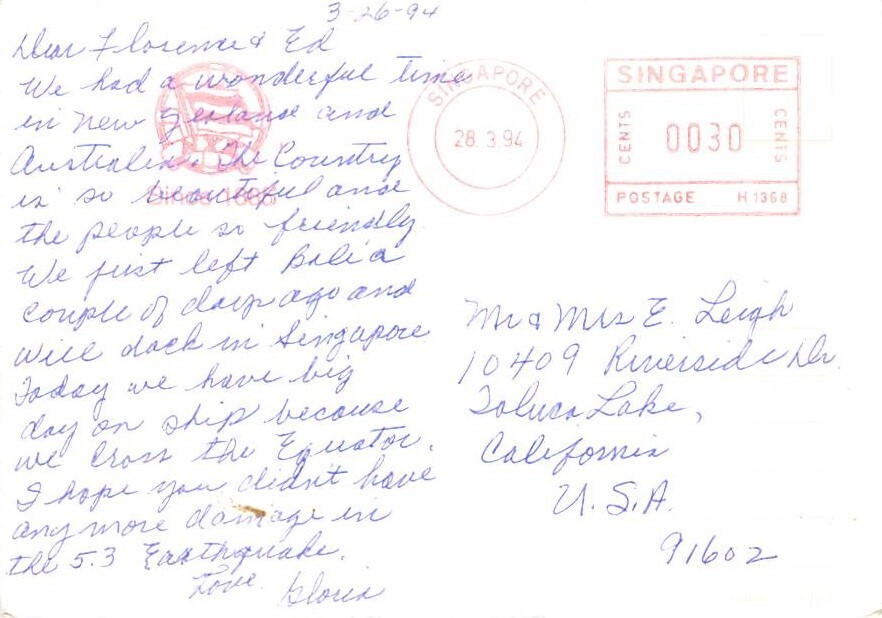 3-26-94
Dear Florence & Ed
We had a wonderful time
in New Zealand and
Australia. The Country
is so beautiful and
the people so friendly.
We just left Bali a
couple of days ago and
will dock in Singapore
Today we have big
day on ship because
we cross the Equator.
I hope you didn't have
any more damage in
the 5.3 Earthquake.
Love Gloria
SINGAPORE
28.3.94
SINGAPORE
CENTS 0030 CENTS
POSTAGE H1368
Mr & Mrs E. Leigh
10409 Riverside Dr.
Toluca Lake,
California
U.S.A.
91602